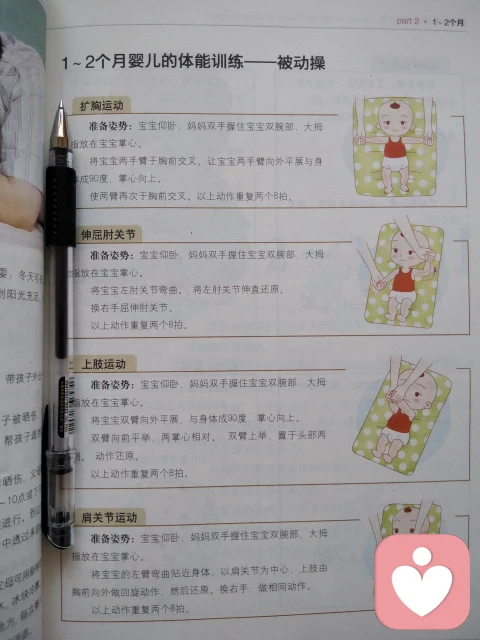 part 2 · 1~2个月
1~2个月婴儿的体能训练——被动操
扩胸运动
准备姿势：宝宝仰卧、妈妈双手握住宝宝双腕部、大拇
指放在宝宝掌心。
将宝宝两手臂于胸前交叉。让宝宝两手臂向外平展与身
体成90度、掌心向上。
使两臂再次于胸前交叉。以上动作重复两个8拍。
伸屈肘关节
准备姿势：宝宝仰卧、妈妈双手握住宝宝双腕部、大拇
指放在宝宝掌心。
将宝宝左肘关节弯曲。将左肘关节伸直还原。
换右手屈伸肘关节。
以上动作重复两个8拍。
上肢运动
准备姿势：宝宝仰卧、妈妈双手握住宝宝双腕部、大拇
指放在宝宝掌心。
将宝宝双臂向外平展、与身体成90度、掌心向上。
双臂向前平举、两掌心相对。双臂上举、置于头部两
侧。动作还原。
以上动作重复两个8拍。
肩关节运动
准备姿势：宝宝仰卧、妈妈双手握住宝宝双腕部、大拇
指放在宝宝掌心。
将宝宝的左臂弯曲贴近身体、以肩关节为中心、上肢由
胸前向外做回旋动作、然后还原。换右手、做相同动作。
以上动作重复两个8拍。
冬天可在
到阳光充足
带孩子外出
子被晒伤
帮孩子遮
晒伤、父母
~10点或下
进行。到达
中透过来的
父母可用